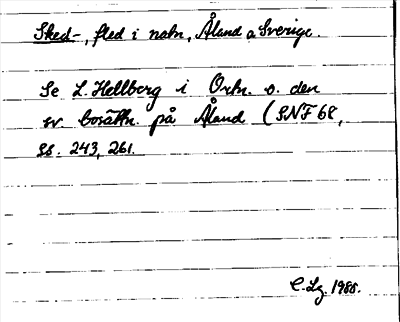 Sked-, fled i natn, Åland o Sverige.
Se L. Hellberg i Ortn. o. den
sv. bosättn. på Åland (SNF 68,
ss. 243, 261.
C. Lg. 1988.